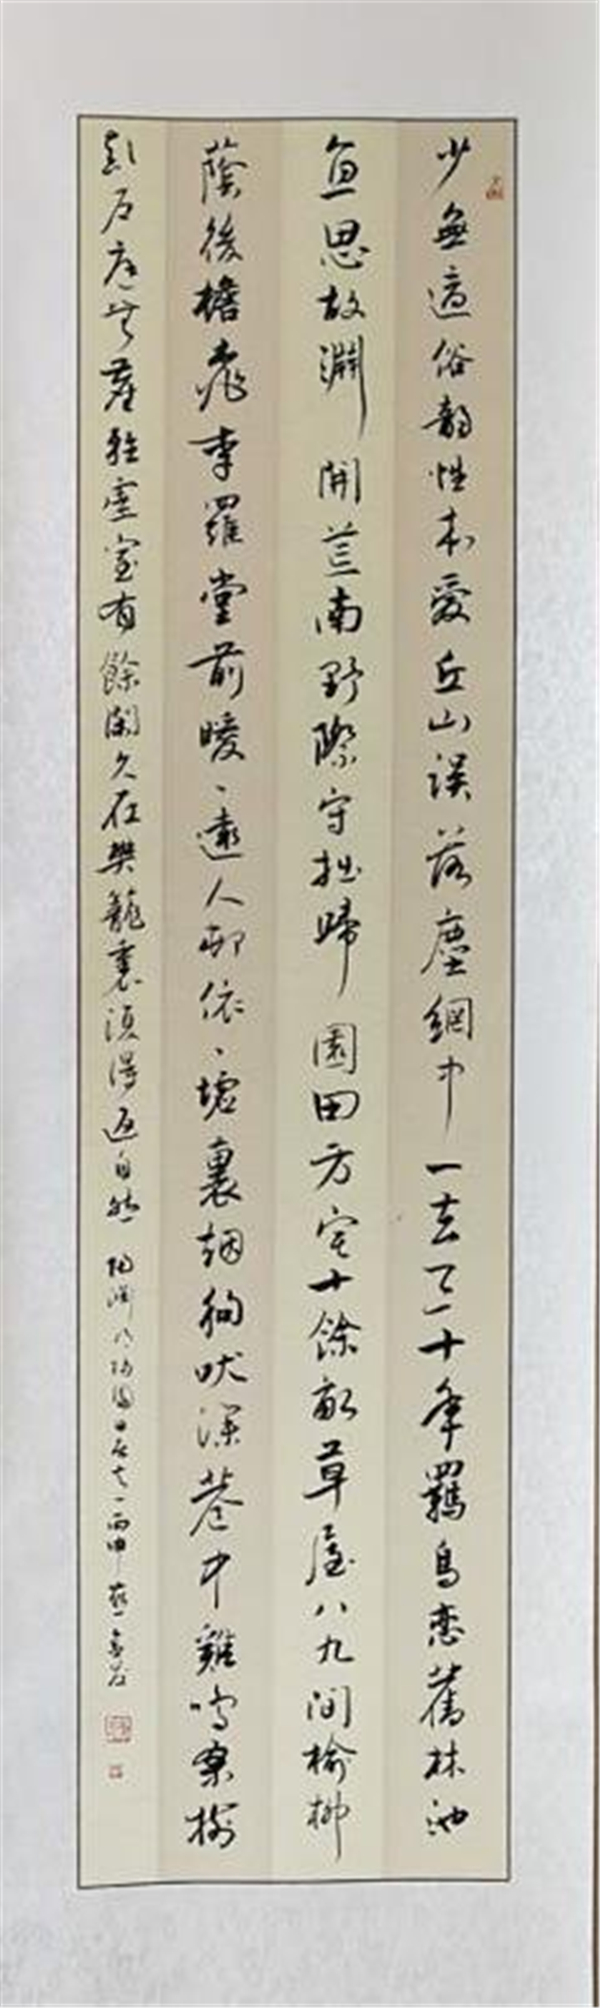 少無適俗韵性本愛丘山误落塵網中一去三十年羈鳥恋舊林池
魚思故淵開荒南野際守拙歸園田方宅十餘畝草屋八九間榆柳
蔭後檐桃李羅堂前暧々遠人邨依々墟裏烟狗吠深巷中雞鳴桑樹
顛戶庭無塵雜虛室有餘閑久在樊籠裏復得返自然 陶淵明歸園田居之一丙申